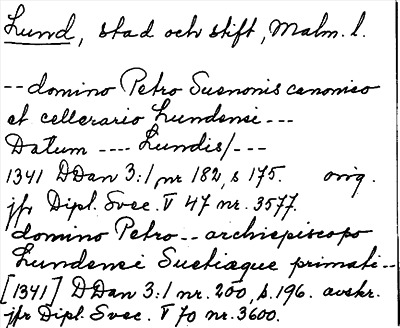 Lund, stad och stift, Malm. l.
-- domino Petro Suenonis canonico
et cellerario Lundensi ---
Datum ---- Lundis/---
1341 DDan 3:1 nr 182, s 175. orig.
jfr Dipl. Svec. V 47 nr. 3577.
domino Petro -- archiepiscopo
Lundensi Suetiaque primati --
[1341] DDan 3:1 nr. 200, s. 196. avskr.
jfr Dipl. Svec. V 70 nr. 3600.